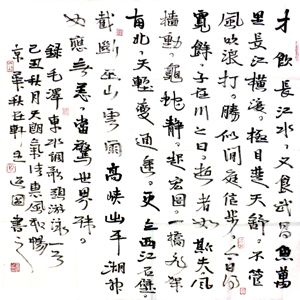 才飲長江水又食武昌魚萬
里長江橫渡極目楚天舒不管
風吹浪打勝似閒庭信步今日得
寬餘子在川上曰逝者如斯夫風
檣動龜蛇靜起宏圖一橋飛架
南北天塹變通途更立西江石壁
截斷巫山雲雨高峽出平湖神
女應無恙當驚世界殊
錄毛澤東水調歌頭游泳一首
己丑秋月天朗氣清惠風和暢
京華秋軒主國書之